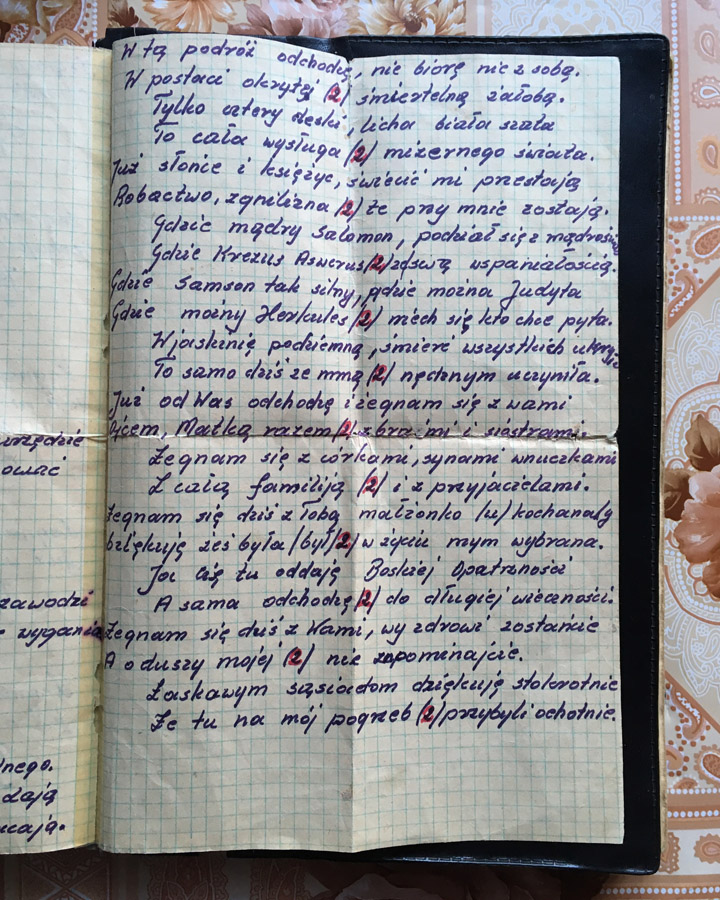 urzędzie
ować
zawodzi
wygania
lnego.
dają
ucają.
W tą podróż odchodzę, nie biorę nic z sobą.
W postaci okrytej /2/ śmiertelną żałobą.
Tylko cztery deski, licha biała szata
To cała wysługa /2/ mizernego świata.
Już słońce i księżyc, świecić mi przestają
Robactwo, zgnilizna /2/ te przy mnie zostają.
Gdzie mądry Salomon, podział się z mądrością
Gdzie Krezus Aswerus /2/ zeswą wspaniałością.
Gdzie Samson tak silny, gdzie można Judyta
Gdzie możny Herkules /2/ niech się kto chce pyta.
W jaskinię podziemną, śmierć wszystkich ukryła
To samo dziś ze mną /2/ nędznym uczyniła.
Już od Was odchodzę i żegnam się z wami
Ojcem, Matką razem /2/ z braćmi i siostrami.
Żegnam się z córkami, synami wnuczkami
Z całą familiją /2/ i z przyjacielami.
Żegnam się dziś z Tobą małżonko /u/ kochana/y
Dziękuję żeś była /był/ /2/ w życiu mym wybrana.
Ja cię tu oddaję Boskiej Opatrzności
A sama odchodzę /2/ do długiej wieczności.
Żegnam się dziś z Wami, wy zdrowi zostańcie
A o duszy mojej /2/ nie zapominajcie.
Łaskawym sąsiadom dziękuję stokrotnie
Że tu na mój pogrzeb /2/ przybyli ochotnie.